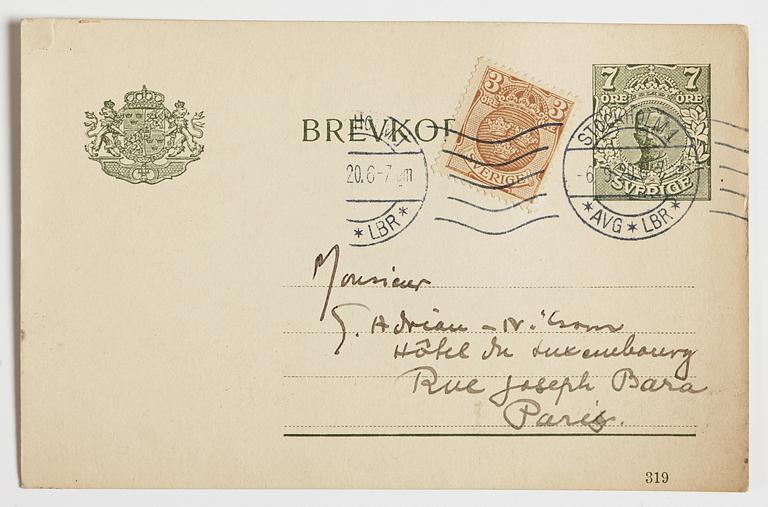 BREVKO
3 3
ÖRE
SVERIGE
7 7
ÖRE ÖRE
SVERIGE
20.6-7
* LBR *
STOCKHOLM 1
* AVG * LBR *
Monsieur
G. Adrian-Nilsson
Hôtel du Luxembourg
Rue Joseph Bara
Paris.
319